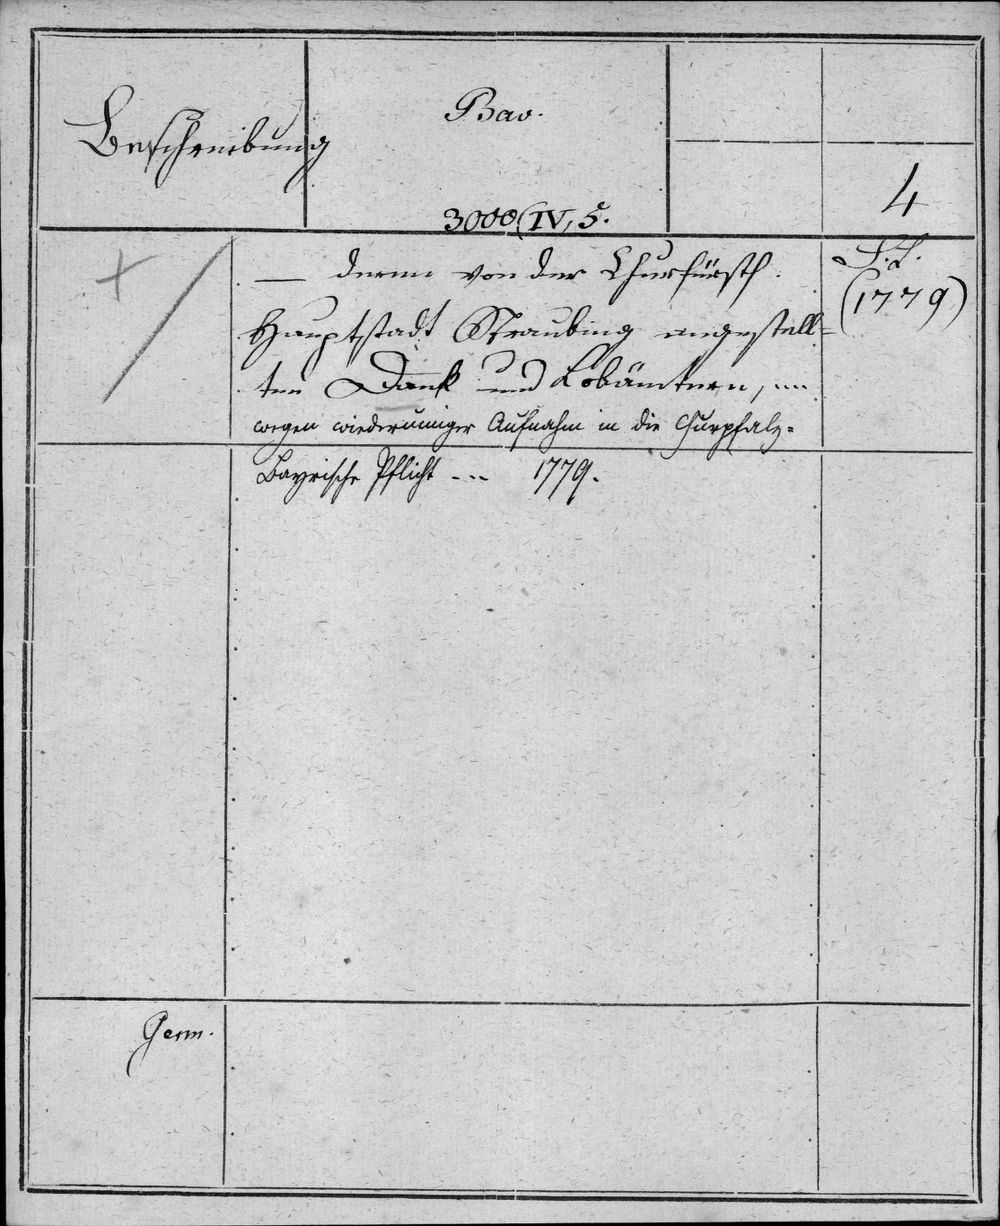 Beschreibung
Bav.
3000 (IV, 5.
4
— deren von der Churfürstl.
Hauptstadt Straubing angestell=
ten Dank und Lobämtern, ....
wegen wiedermiger Aufnahm in die Churpfalz=
Bayrische Pflicht ... 1779.
S. l.
(1779)
Germ.